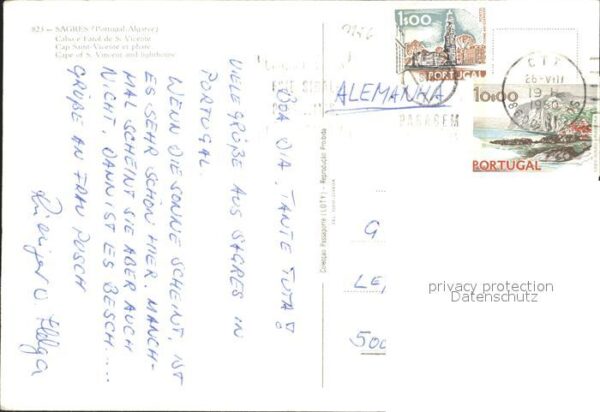 823 – SAGRES (Portugal-Algarve)
Cabo e Farol de S. Vicente
Cap Saint-Vicente et phare
Cape of S. Vincent and lighthouse
BOA DIA, TANTE TUTA!
VIELE GRÜßE AUS SAGRES IN
PORTUGAL.
WENN DIE SONNE SCHEINT, IST
ES SEHR SCHÖN HIER. MANCH-
MAL SCHEINT SIE ABER AUCH
NICHT, DANN IST ES BESCH....
GRÜßE AN FRAU PUSCH
Helga
Colecção Passaporte (LOTY) - Reprodução Proibida
1$00
PORTUGAL
10$00
PORTUGAL
CTT
1980
ALEMANHA
G
LE,
500
privacy protection
Datenschutz